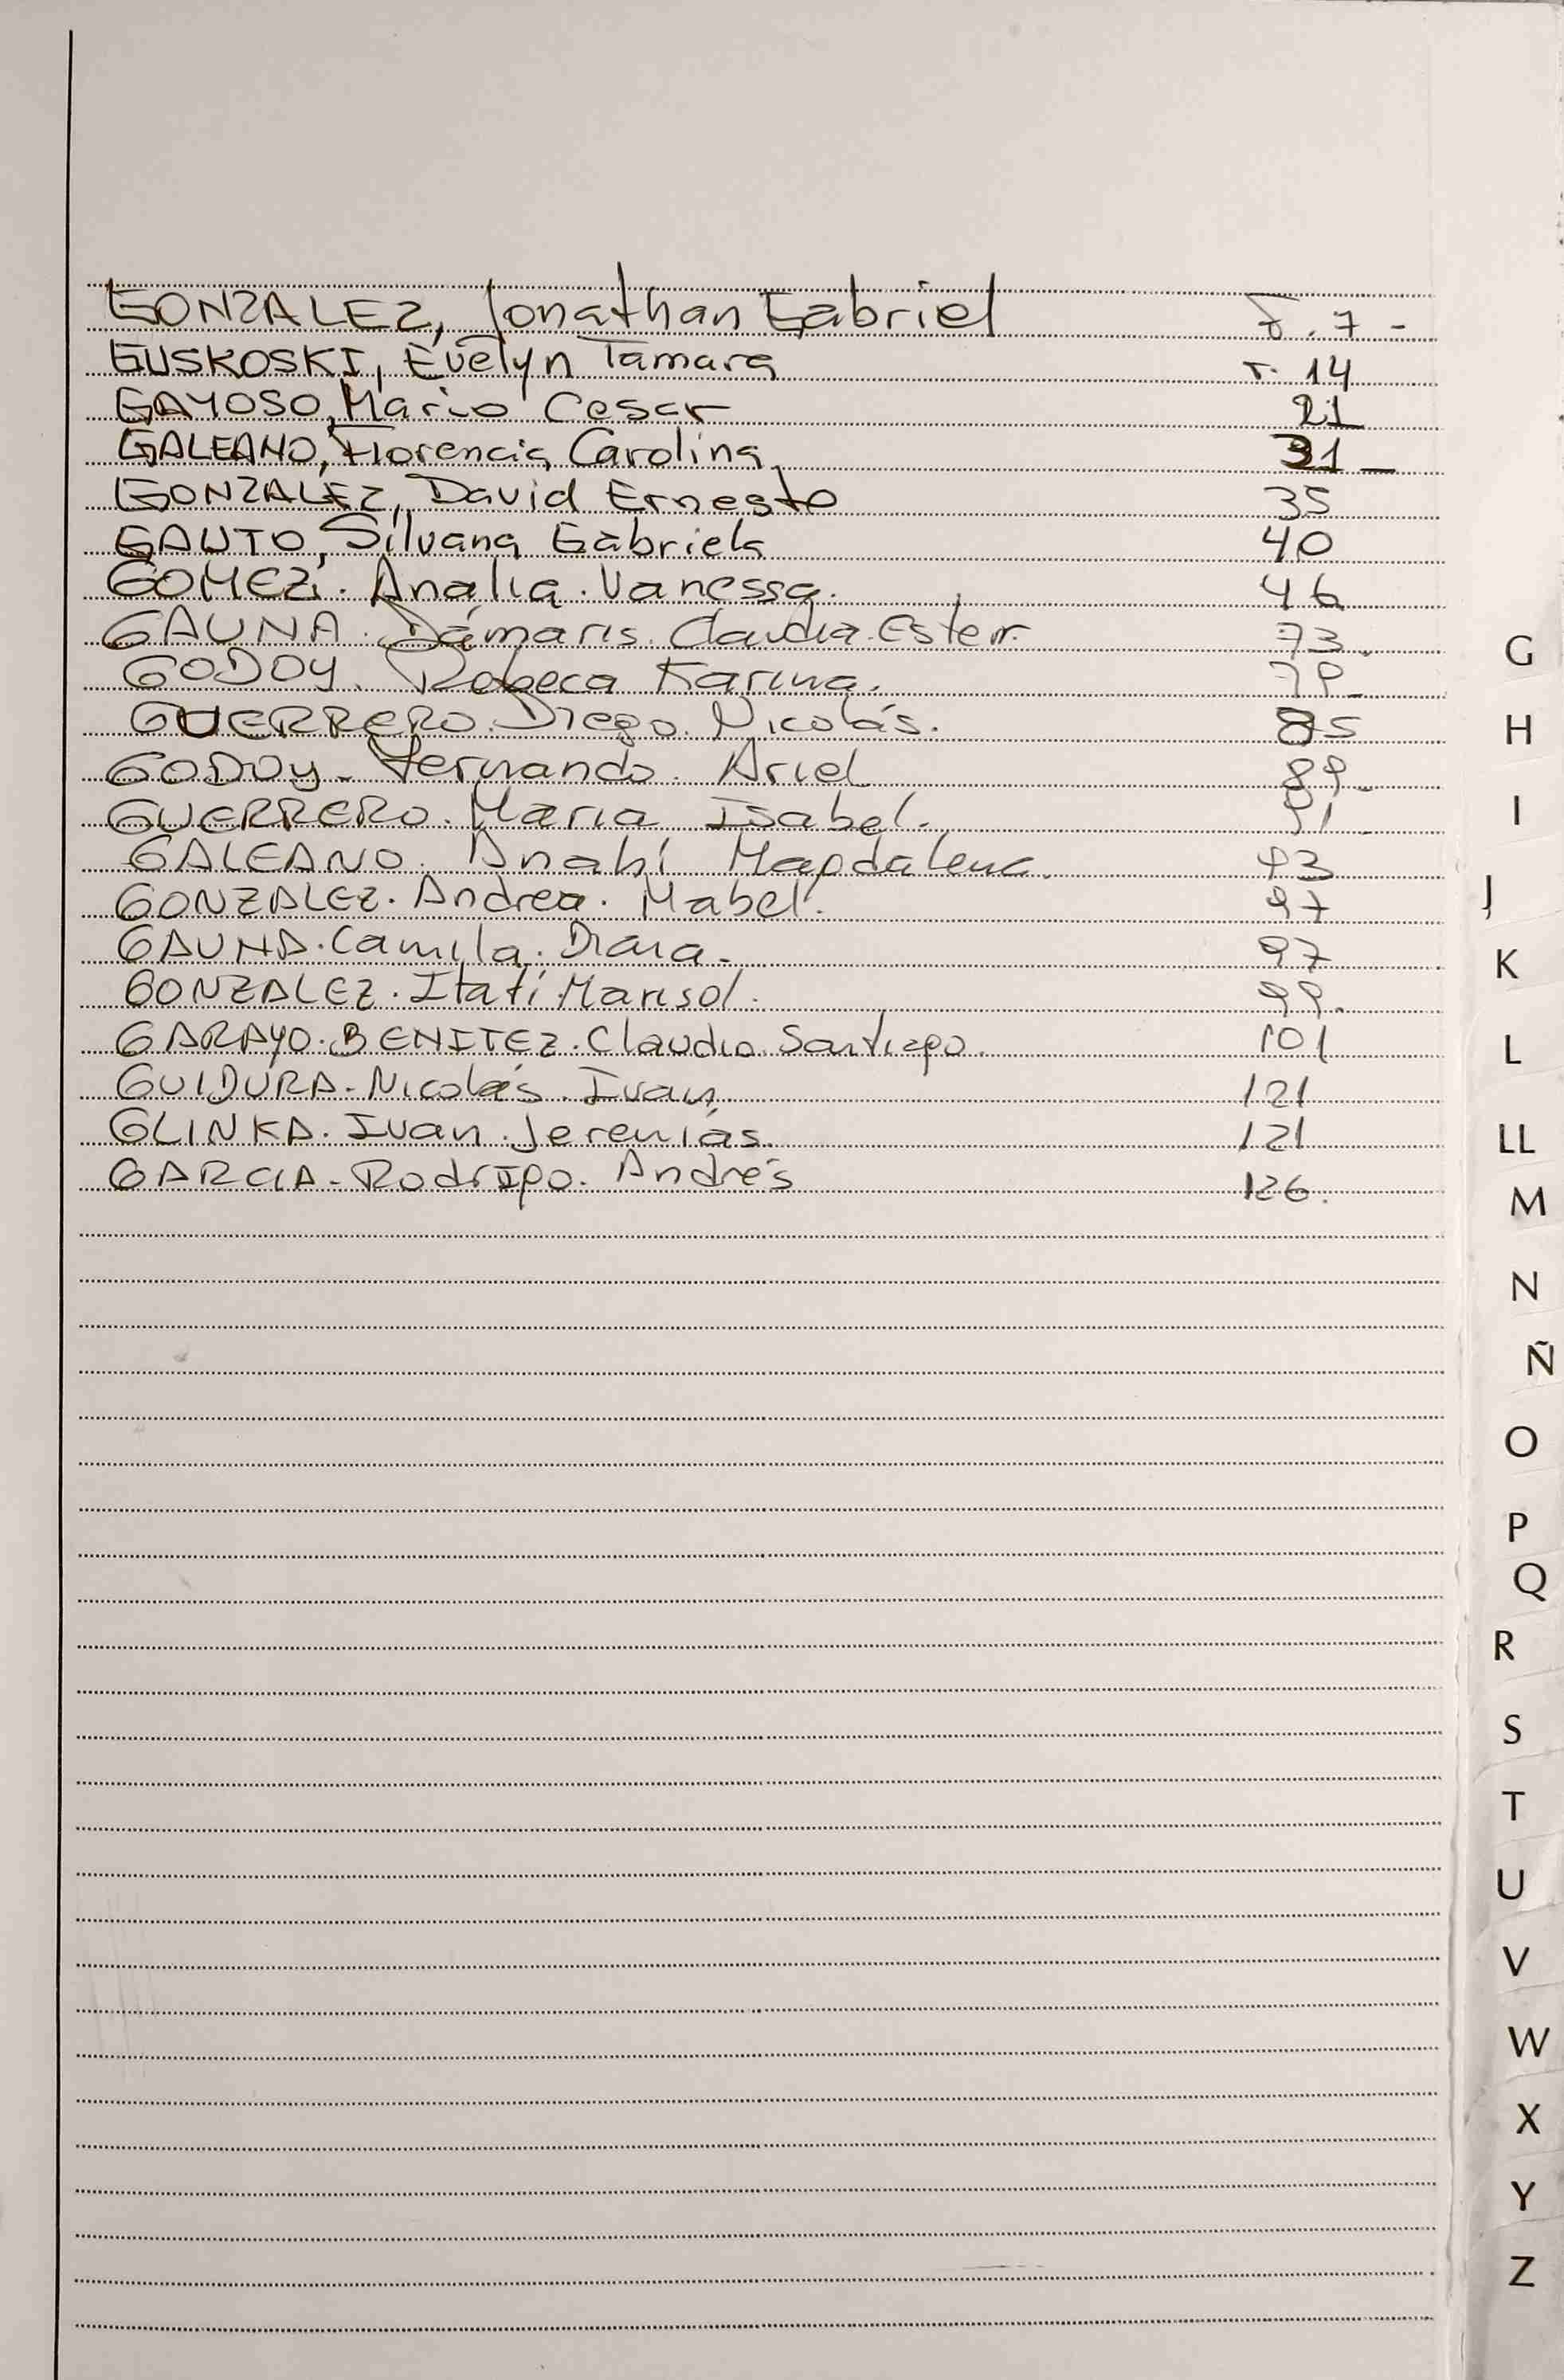 GONZALEZ, Jonathan Gabriel F. 7 -
GUSKOSKI, Evelyn Tamara F. 14
GAYOSO, Mario Cesar 21
GALEANO, Florencia Carolina 31 -
GONZALEZ, David Ernesto 35
GAUTO, Silvana Gabriela 40
GOMEZ. Analia. Vanessa. 46
GAUNA. Dámaris. Claudia. Ester. 73.
GODOY. Rebeca Karina.
GUERRERO. Diego. Nicolás. 85
GODOY - Fernando. Ariel 89.
GUERRERO. Maria Isabel. 91
GALEANO. Anahí Magdalena. 93
GONZALEZ. Andrea. Mabel. 97
GAUNA. Camila. Diana. 97
GONZALEZ. Itatí. Marisol. 99.
GARAYO. BENITEZ. Claudio. Santiago. 101
GUIDURA - Nicolás. Ivan. 121
GLINKA. Ivan. Jeremías. 121
GARCIA - Rodrigo. Andrés 126.
G
H
I
J
K
L
LL
M
N
Ñ
O
P
Q
R
S
T
U
V
W
X
Y
Z